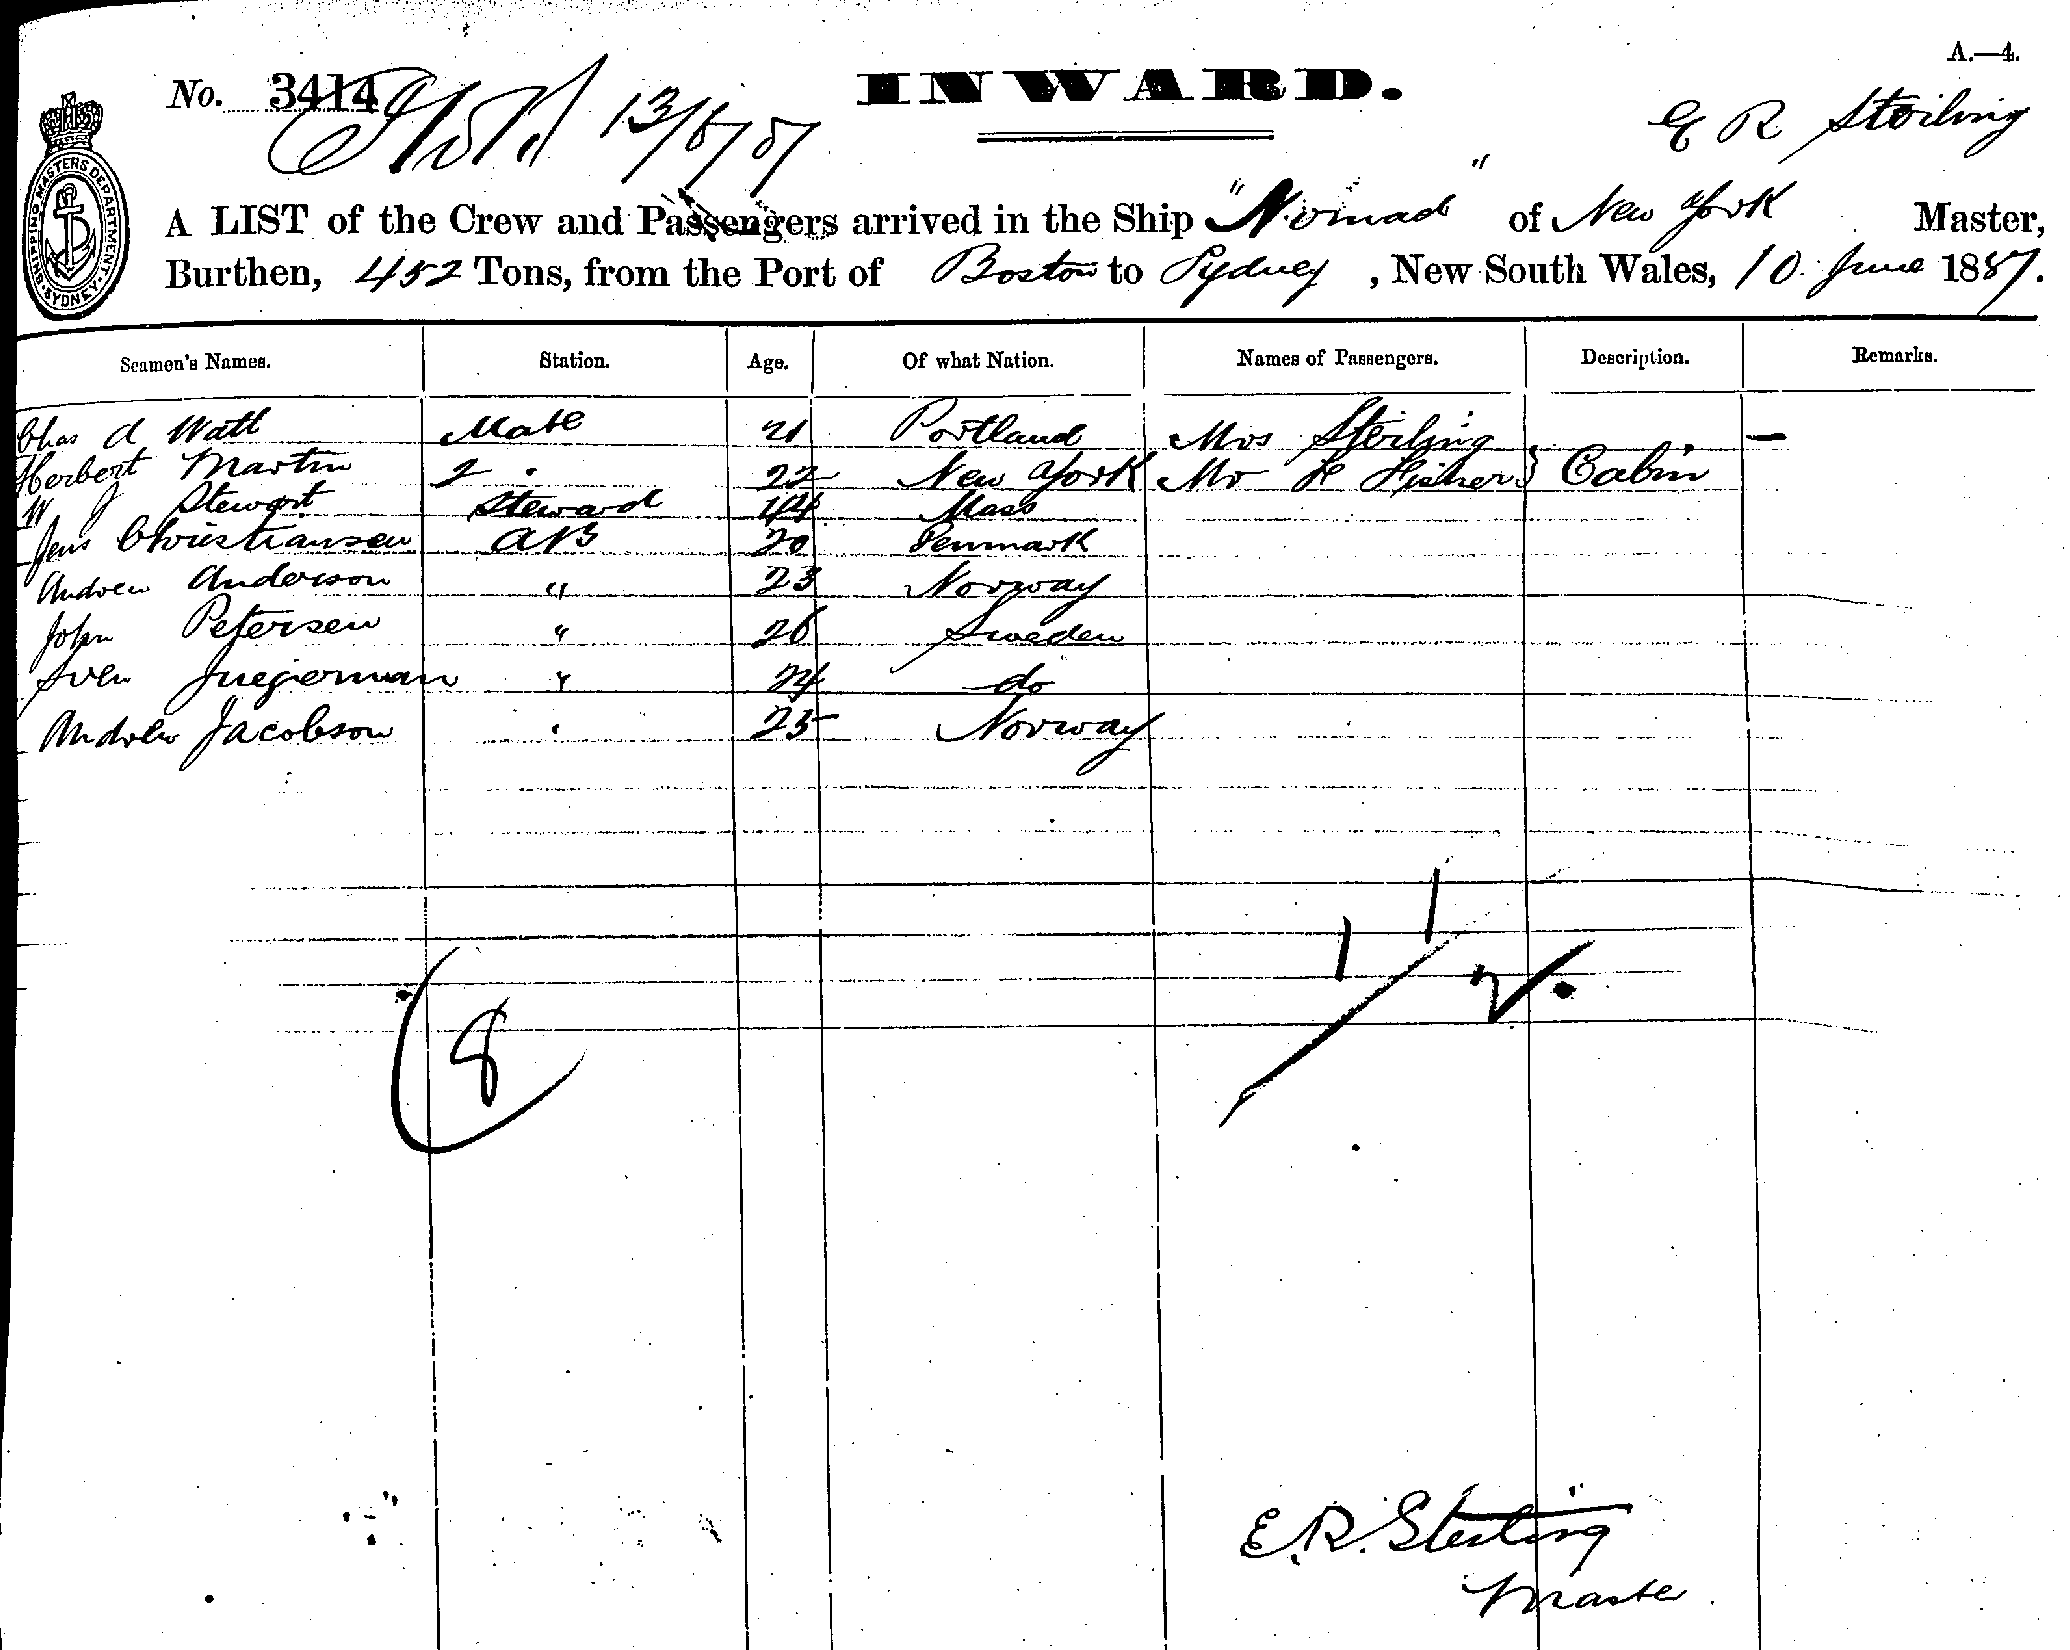 A.—4.
No. 3414 INWARD.
13/6/87
E R Sterling
A LIST of the Crew and Passengers arrived in the Ship "Nomad" of New York Master,
Burthen, 452 Tons, from the Port of Boston to Sydney, New South Wales, 10 June 1887.
SHIPPING MASTERS DEPARTMENT. SYDNEY.
Seamen's Names. Station. Age. Of what Nation. Names of Passengers. Description. Remarks.
Chas A Watt Mate 21 Portland Mrs Sterling —
Herbert Martin 2 " 22 New York Mr H Fisher } Cabin
W J Stewart Steward 44 Mass
Jens Christiansen AB 20 Denmark
Andrew Anderson " 23 Norway
John Petersen " 26 Sweden
Sven " 24 do
Andrew Jacobson " 25 Norway
1 1
8 2
E. R. Sterling
Master